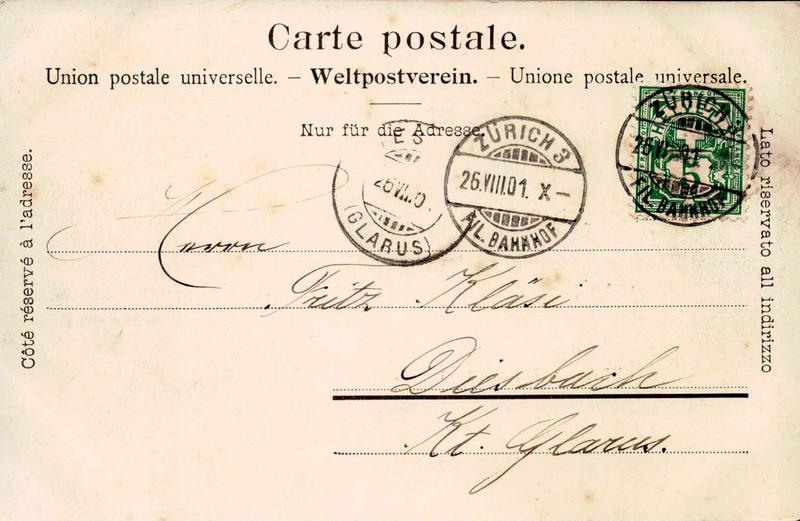 Carte postale.
Union postale universelle. – Weltpostverein. – Unione postale universale.
Nur für die Adresse.
Côté réservé à l'adresse.
Lato riservato all indirizzo
ZÜRICH 3
26.VIII.01. X–
A/L. BAHNHOF
(GLARUS)
ZÜRICH
BAHNHOF
5
Herrn
Fritz Kläsi
Diesbach
Kt. Glarus.